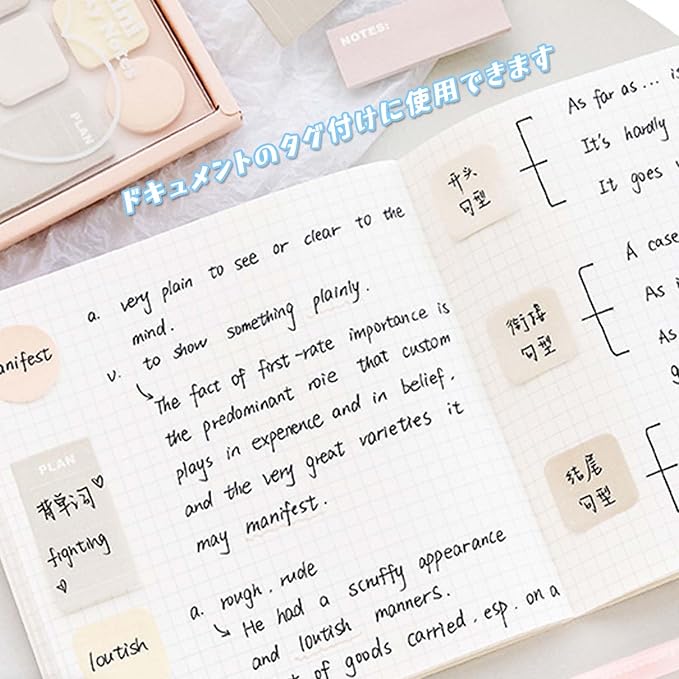 PLAN
NOTES:
ドキュメントのタグ付けに使用できます
a. very plain to see or clear to the
mind.
v. to show something plainly.
The fact of first-rate importance is
the predominant roie that custom
plays in experence and in belief.
and the very great varieties it
may manifest.
anifest
PLAN
背单词
fighting
a. rough. rude
He had a scruffy appearance
and loutish manners.
t of goods carried. esp. on a
loutish
开头
句型
As far as... is
It's hardly
It goes
衔接
句型
A case
As i
As
g
结尾
句型